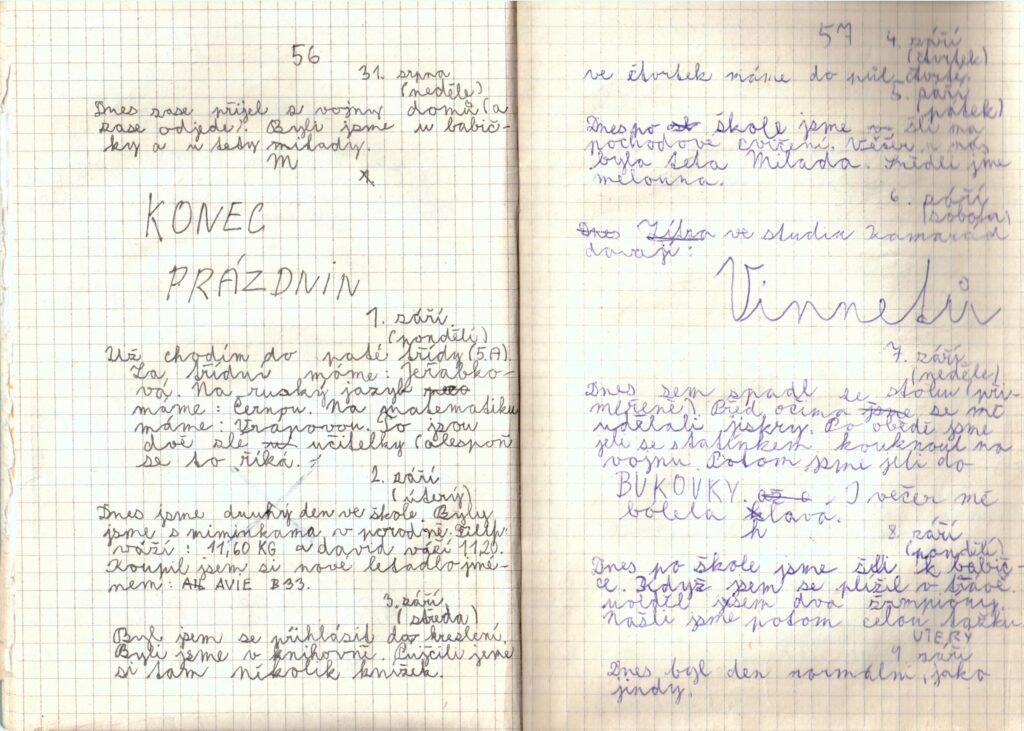 56
31. srpna
(neděle)
Dnes zase přijel z vojny domů (a
zase odjede). Byli jsme u babič-
ky a u tety milady.
M
KONEC
PRÁZDNIN
1. září
(pondělí)
Už chodím do páté třídy (5.A).
Za třídní máme: Jeřábko-
vá. Na ruský jazyk
máme: Černou. Na matematiku
máme: Vrápovou. To jsou
dvě zlé učitelky (alespoň
se to říká.
2. září
(úterý)
Dnes jsme druhý den ve škole. Byly
jsme s miminkama v poradně. Filip
váží: 11,60 KG a david váží 11,20.
Koupil jsem si nové letadlo jmé-
nem: AVIE B33.
3. září
(středa)
Byl jsem se přihlásit do kreslení.
Byli jsme v knihovně. Pujčili jsme
si tam nikolik knížek.
57
4. září
(čtvrtek)
ve čtvrtek máme do půl čtvrté.
5. září
(pátek)
Dnes po škole jsme šli na
pochodové cvičení. Večer u nás
byla teta Milada. Jnědli jme
melouna.
6. září
(sobota)
Dnes Zítra ve studiu Kamarád
davají:
Vinnetů
7. září
(neděle)
Dnes sem spadl se stolu (při-
měřeně). Před očima jsme se mě
udělali jiskry. Po obědě jsme
jeli se statínkem kouknout na
vojnu. Potom jsme jeli do
BUKOVKY. I večer mě
bolela hlava.
h
8. září
(pondělí)
Dnes po škole jsme šli k babič-
ce. Když jsem se plížil v trávě
uviděl jsem dva žampiony.
Našli jsme potom celou tašku.
UTERY
9. září
Dnes byl den normální, jako
jindy.